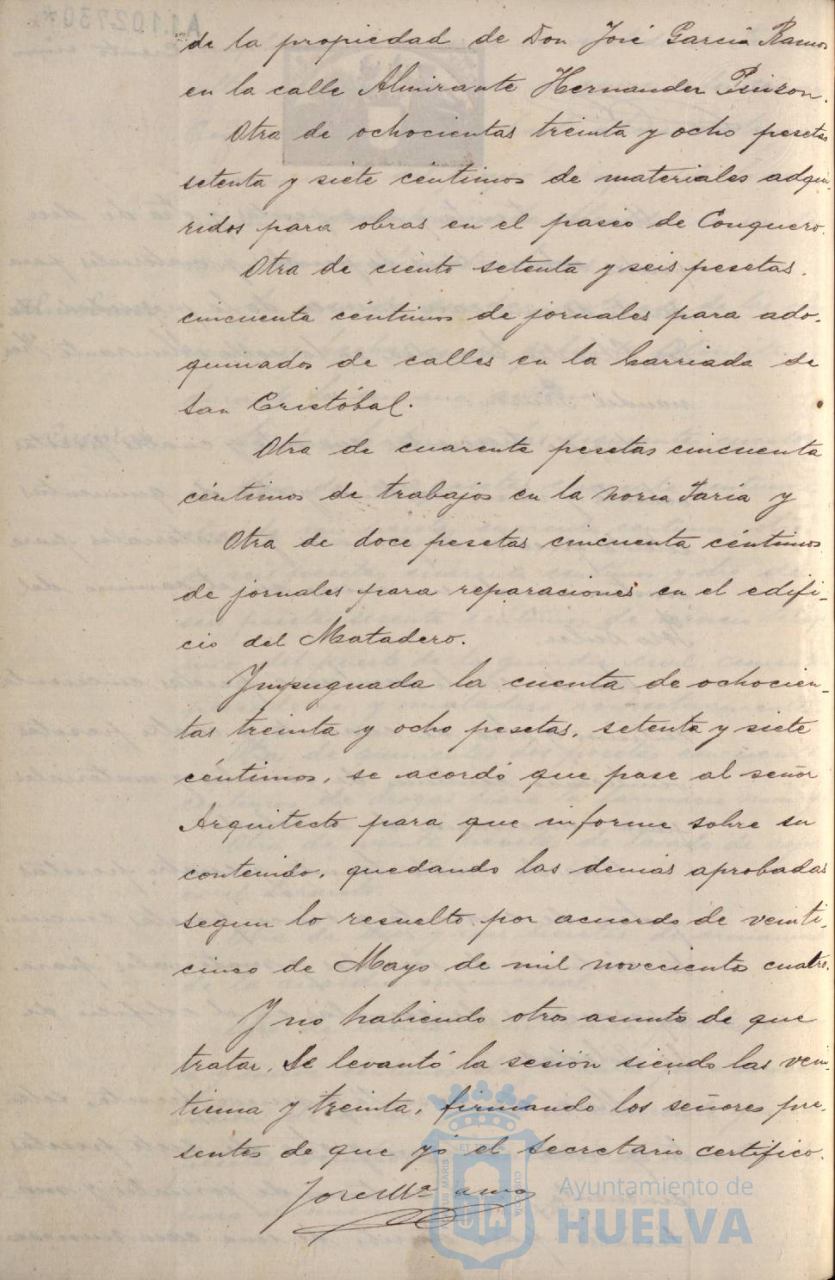 de la propiedad de Don José García Ramos
en la calle Almirante Hernandez Pinzon.
Otra de ochocientas treinta y ocho pesetas
setenta y siete céntimos de materiales adqui-
ridos para obras en el paseo de Conquero.
Otra de ciento setenta y seis pesetas.
cincuenta céntimos de jornales para ado-
quinados de calles en la barriada de
San Cristóbal.
Otra de cuarenta pesetas cincuenta
céntimos de trabajos en la noria Faria y
Otra de doce pesetas cincuenta céntimos
de jornales para reparaciones en el edifi-
cio del Matadero.
Impugnada la cuenta de ochocien-
tas treinta y ocho pesetas, setenta y siete
céntimos, se acordó que pase al señor
Arquitecto para que informe sobre su
contenido, quedando las demás aprobadas
segun lo resuelto por acuerdo de veinti-
cinco de Mayo de mil novecientos cuatro.
Y no habiendo otros asunto de que
tratar, Se levantó la sesión siendo las vein-
tiuna y treinta, firmando los señores pre-
sentes de que yó el Secretario certifico.
José Mª
Ayuntamiento de
HUELVA